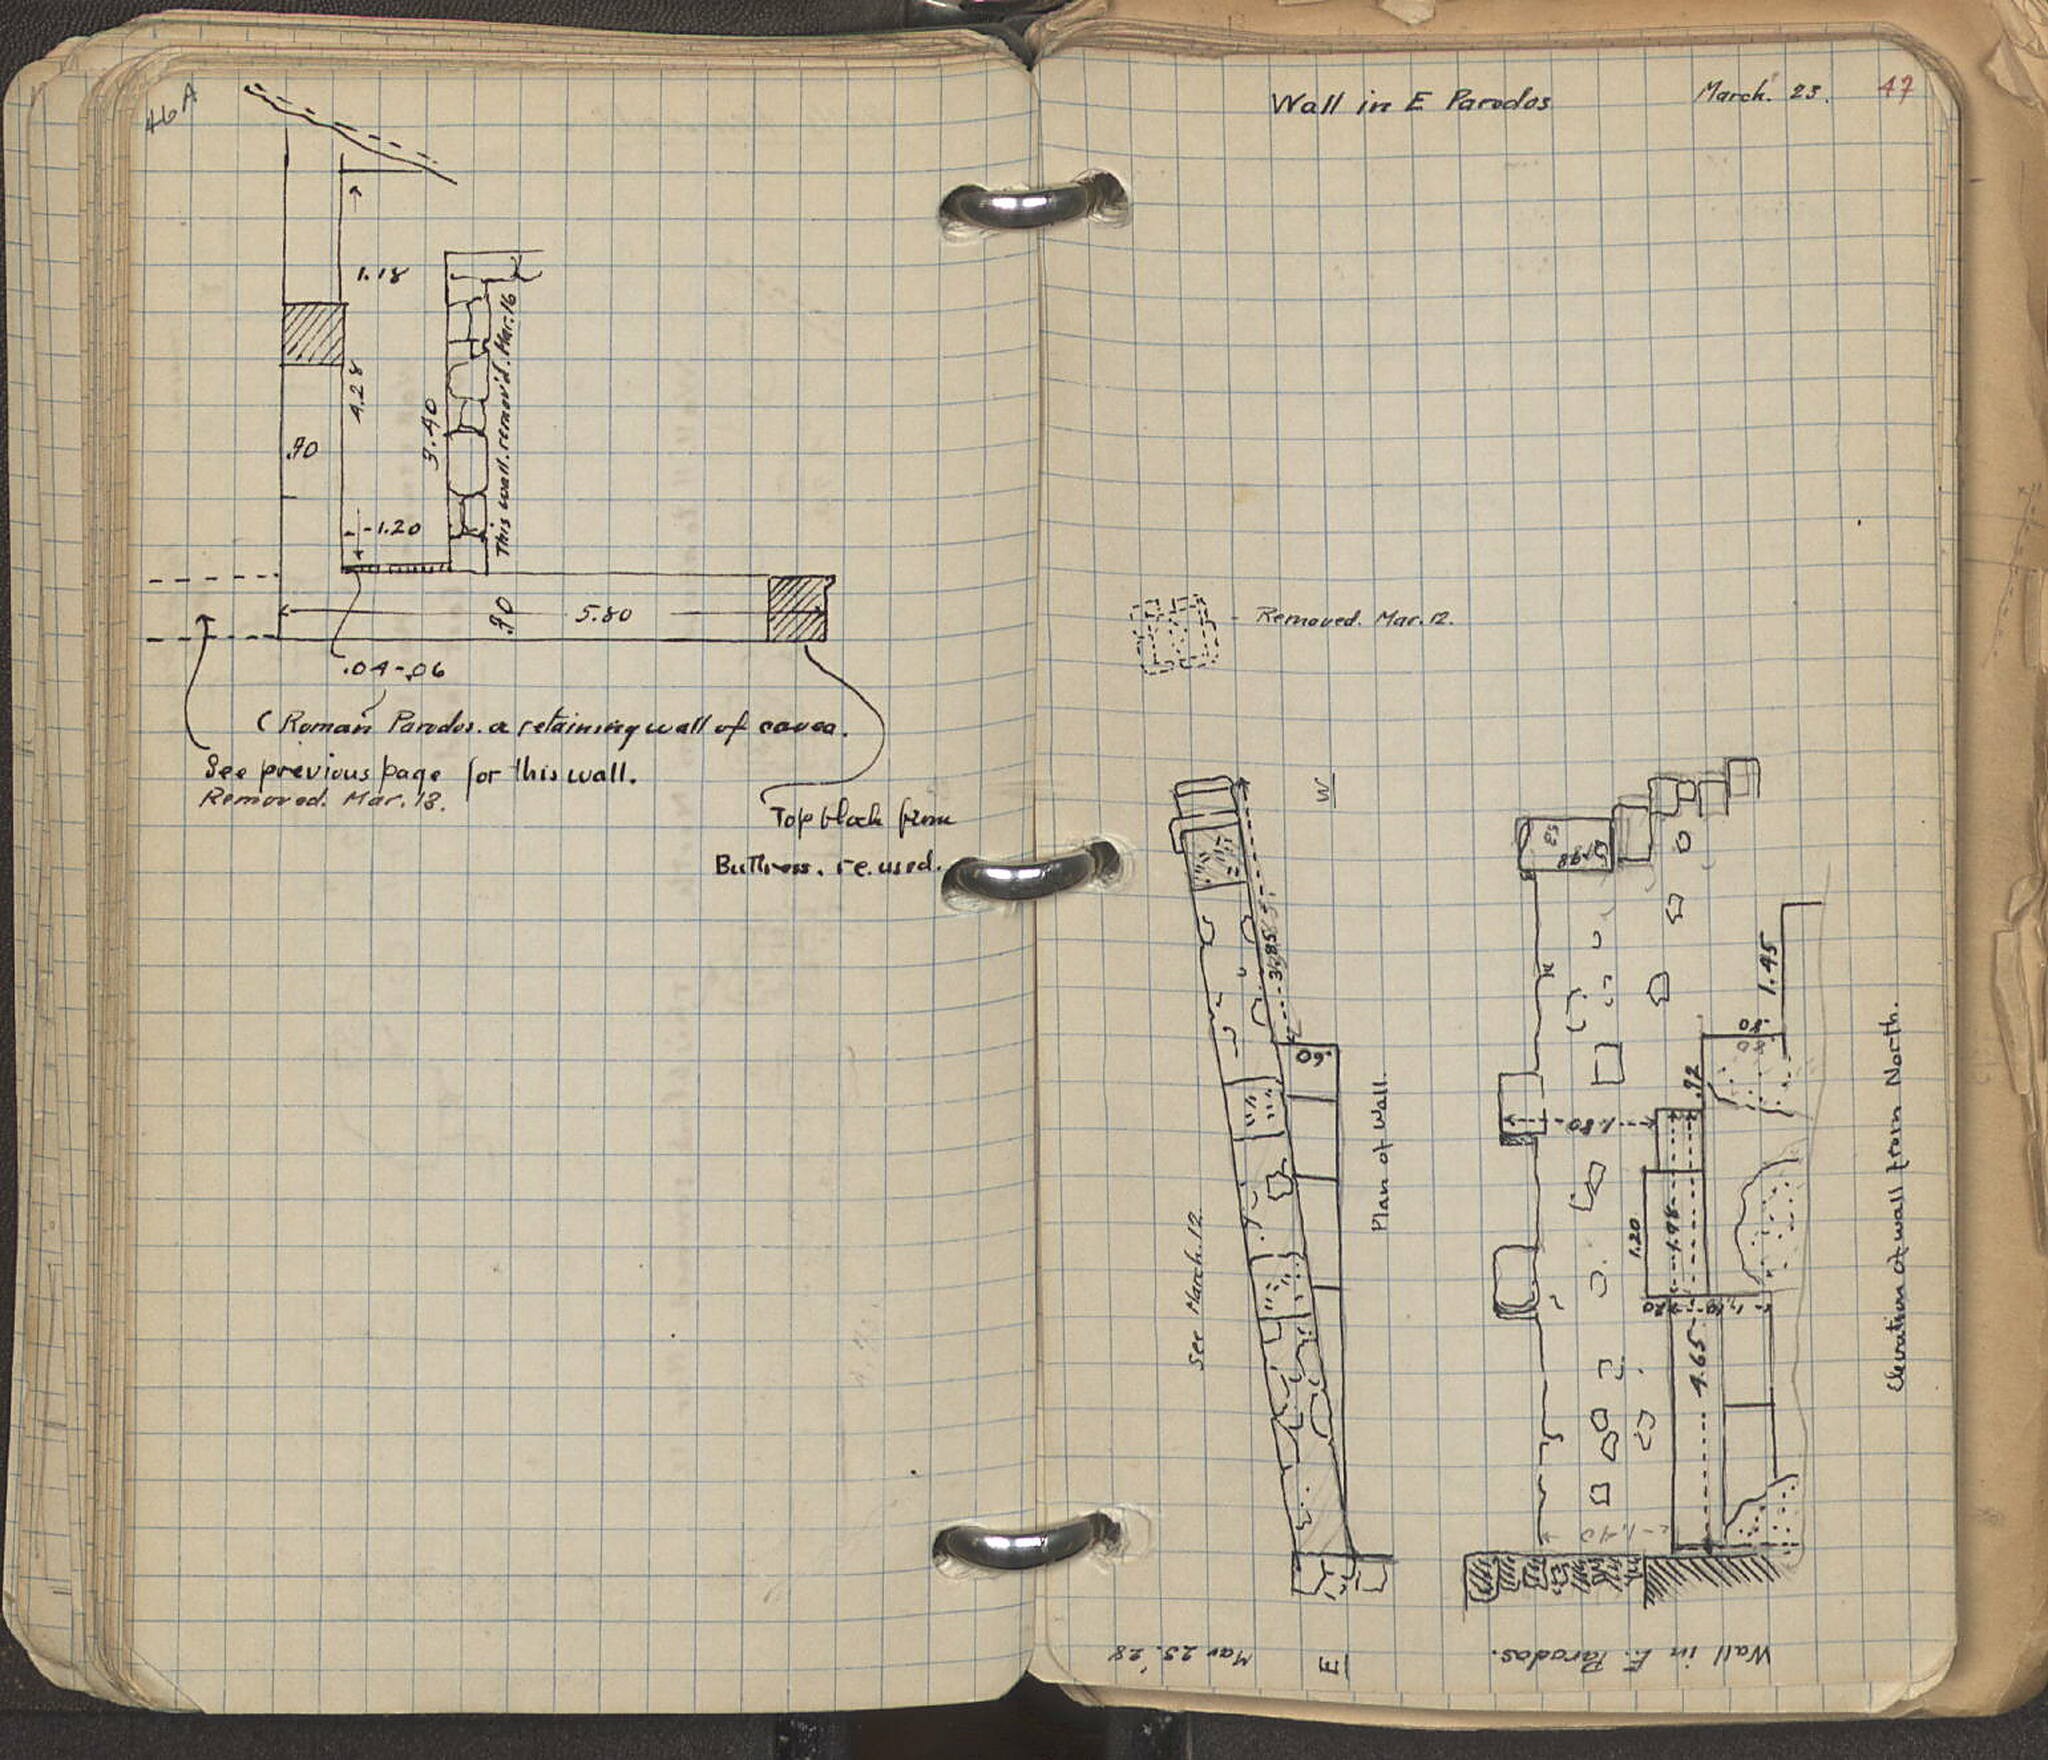 46A
1.18
4.28
3.40
.70
This wall. remov'd. Mar. 16
-1.20
.70
5.80
.04-.06
(Roman Parodos. a retaining wall of cavea.
See previous page for this wall.
Removed. Mar. 13.
Top block from
Buttress. re.used.
Wall in E Parodos
March. 23.
47
- Removed. Mar. 12.
W
3.85
.60
Plan of Wall.
See March. 12
1.45
.80
.80
.92
1.80
1.20
1.98
4.65
1.40
Elevation of wall from North.
Mar 23. '28
E
Wall in E. Parodos.